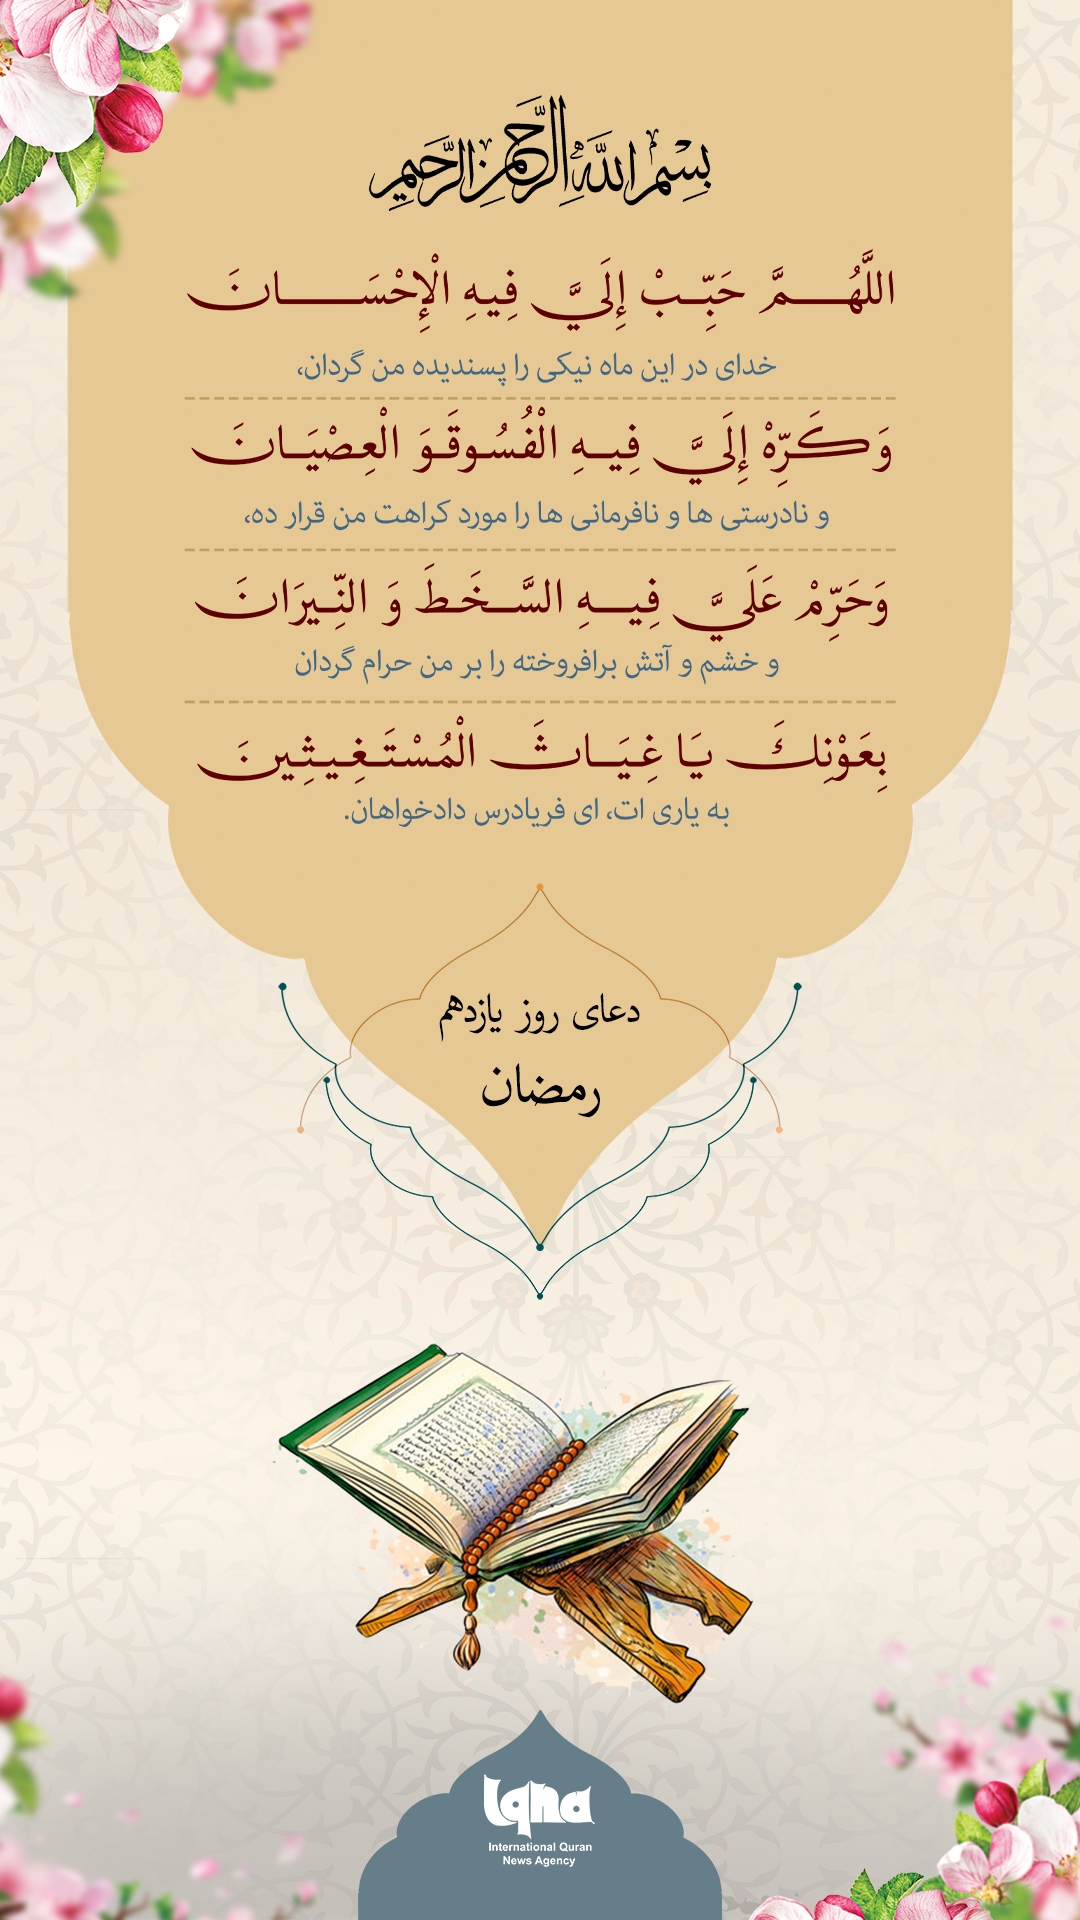 بِسْمِ اللَّهِ الرَّحْمَنِ الرَّحِيمِ
اللَّهُمَّ حَبِّبْ إِلَيَّ فِيهِ الْإِحْسَانَ
خدای در این ماه نیکی را پسندیده من گردان،
وَكَرِّهْ إِلَيَّ فِيهِ الْفُسُوقَوَ الْعِصْيَانَ
و نادرستی ها و نافرمانی ها را مورد کراهت من قرار ده،
وَحَرِّمْ عَلَيَّ فِيهِ السَّخَطَ وَ النِّيرَانَ
و خشم و آتش برافروخته را بر من حرام گردان
بِعَوْنِكَ يَا غِيَاثَ الْمُسْتَغِيثِينَ
به یاری ات، ای فریادرس دادخواهان.
دعای روز یازدهم
رمضان
Iqna
International Quran
News Agency